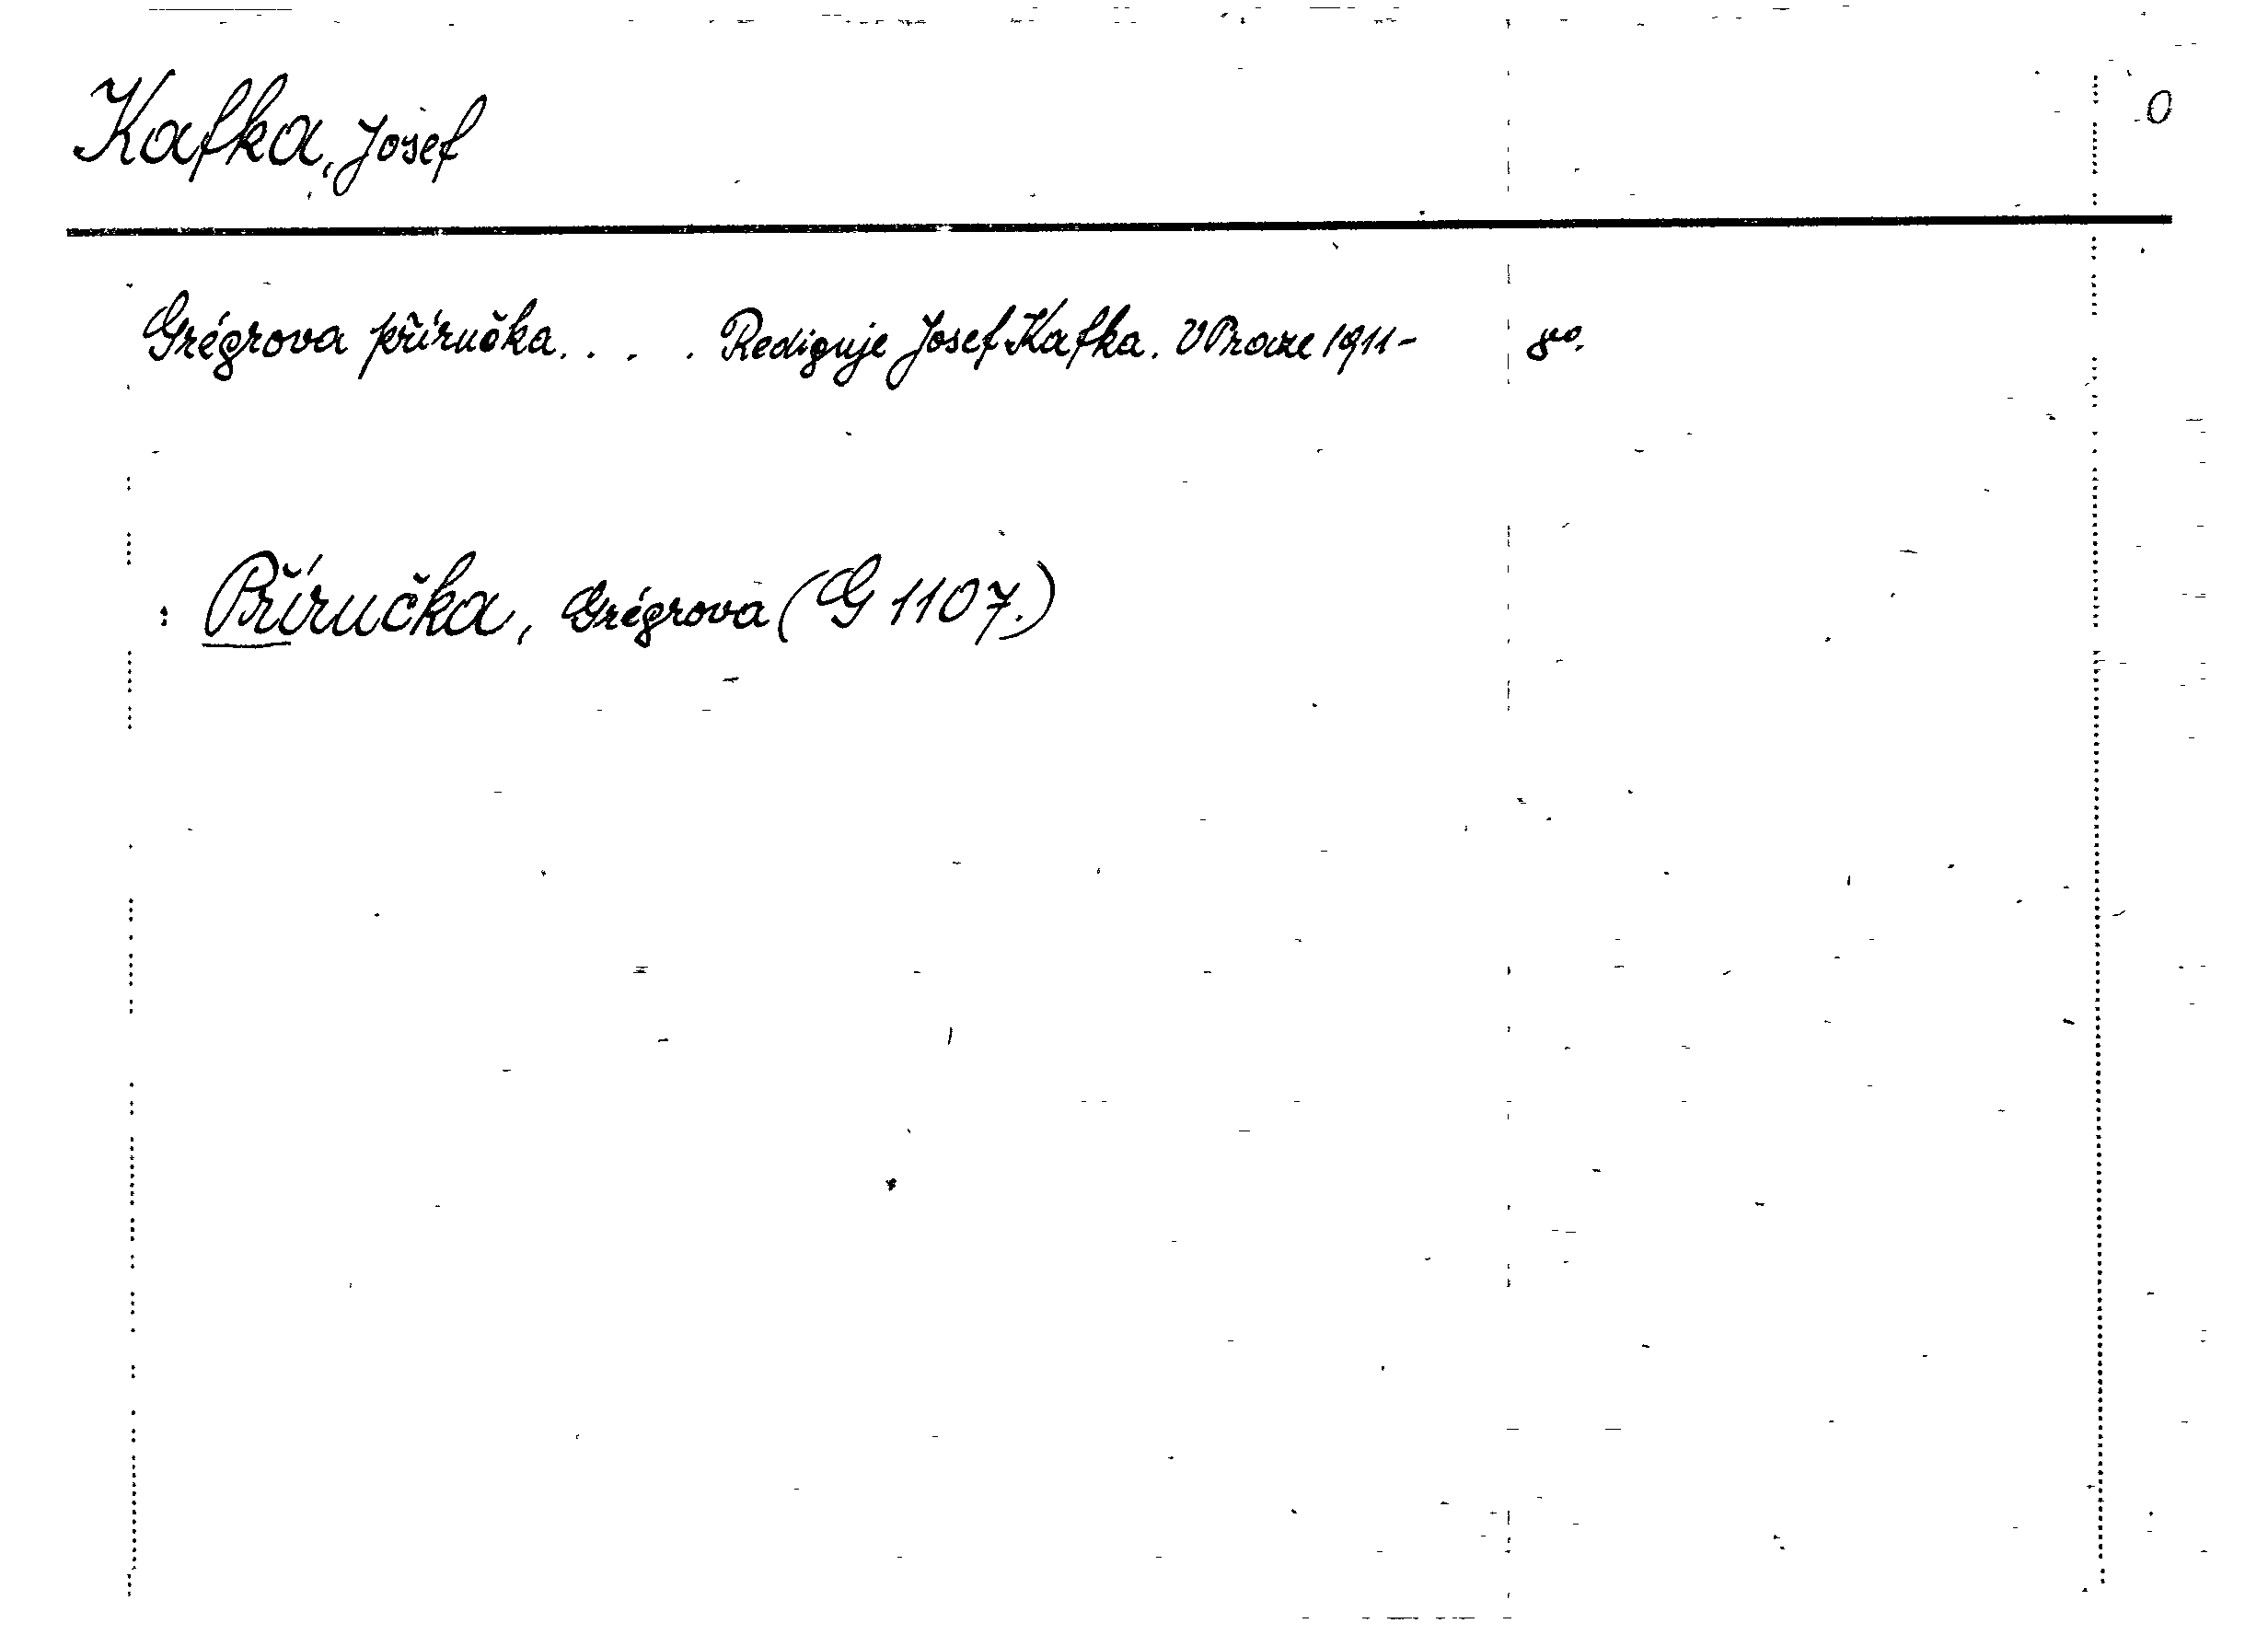 Kafka, Josef
O
Grégrova příručka. . . . Rediguje Josef Kafka. V Praze 1911- 8°.
: Příručka, Grégrova (G 1107.)